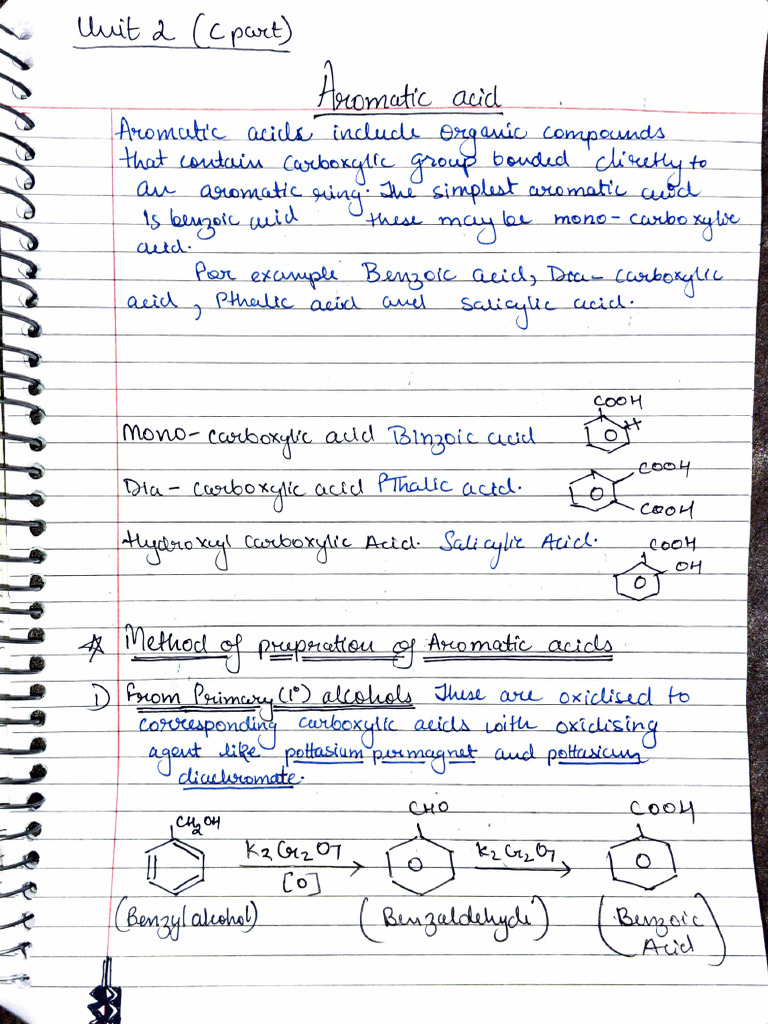 Unit 2 (C part)
Aromatic acid
Aromatic acids include organic compounds
that contain carboxylic group bonded directly to
an aromatic ring. The simplest aromatic acid
is benzoic acid these may be mono-carboxylic
acid.
For example Benzoic acid, Dia-carboxylic
acid, Pthalic acid and salicylic acid.
COOH
Mono-carboxylic acid Binzoic acid
H
COOH
Dia-carboxylic acid Pthalic acid.
COOH
Hydroxyl Carboxylic Acid. Salicylic Acid.
COOH
OH
☆ Method of prepration of Aromatic acids
1) From Primary (1°) alcohols These are oxidised to
corresponding carboxylic acids with oxidising
agent like pottasium permagnet and pottasium
diachromate.
CH2OH CHO COOH
K2Cr2O7 K2Cr2O7
[O]
(Benzyl alcohol) (Benzaldehyde) (Benzoic
Acid)